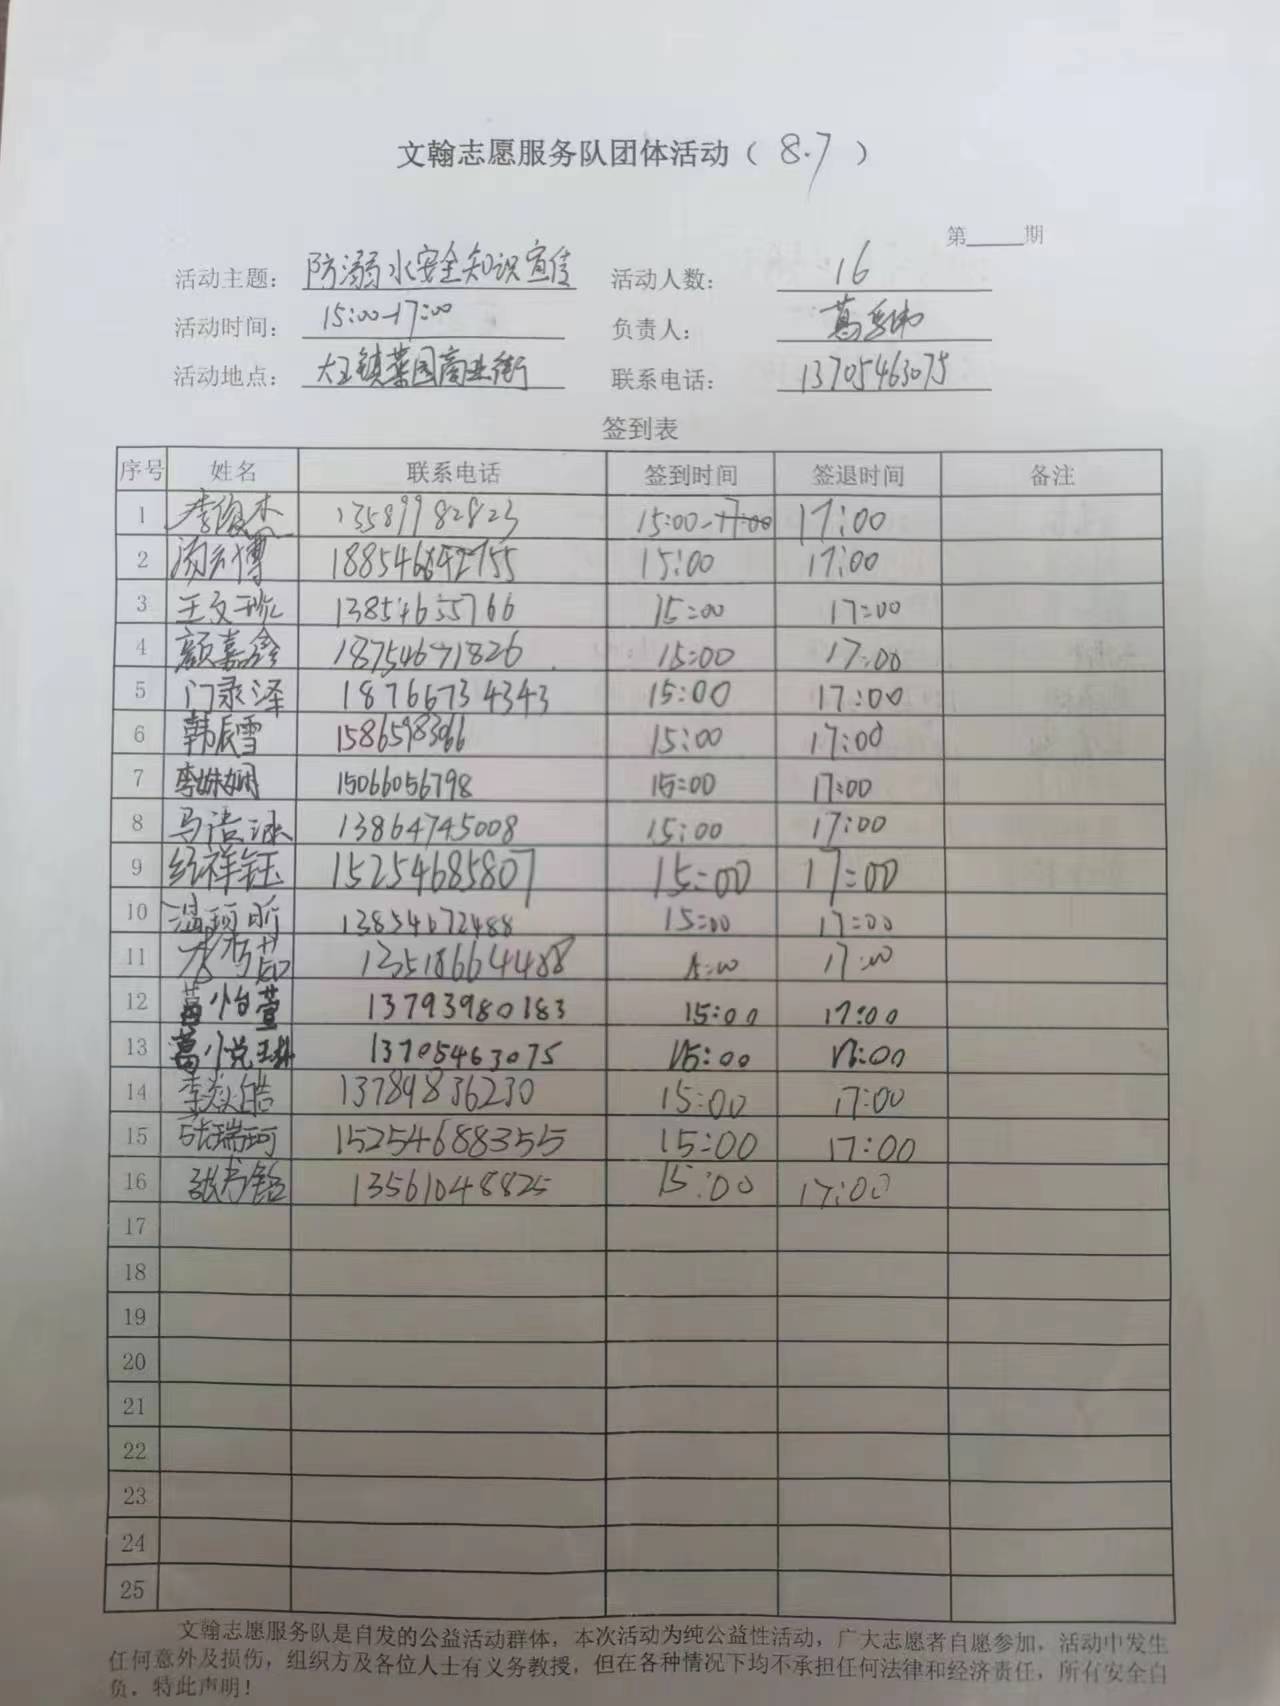 文翰志愿服务队团体活动（ 8.7 ）
第____期
活动主题： 防溺水安全知识宣传 活动人数： 16
活动时间： 15:00-17:00 负责人： 葛
活动地点： 大王镇菜园商业街 联系电话： 13705463075
签到表
序号 姓名 联系电话 签到时间 签退时间 备注
1 李俊杰 13589982823 15:00-17:00 17:00
2 15:00 17:00
3 王文 13854655766 15:00 17:00
4 颜嘉鑫 18754671826 15:00 17:00
5 门录泽 18766734343 15:00 17:00
6 韩辰雪 15:00 17:00
7 李姝娴 15066056798 15:00 17:00
8 马语涵 13864745008 15:00 17:00
9 纪祥钰 15254685807 15:00 17:00
10 温珂昕 13854672488 15:00 17:00
11 15:00 17:00
12 葛怡萱 13793980183 15:00 17:00
13 葛悦琳 13705463075 15:00 17:00
14 李焱皓 13789836230 15:00 17:00
15 张瑞珂 15254688355 15:00 17:00
16 张书铭 13561048825 15:00 17:00
17
18
19
20
21
22
23
24
25
文翰志愿服务队是自发的公益活动群体，本次活动为纯公益性活动，广大志愿者自愿参加，活动中发生
任何意外及损伤，组织方及各位人士有义务教授，但在各种情况下均不承担任何法律和经济责任，所有安全自
负，特此声明！